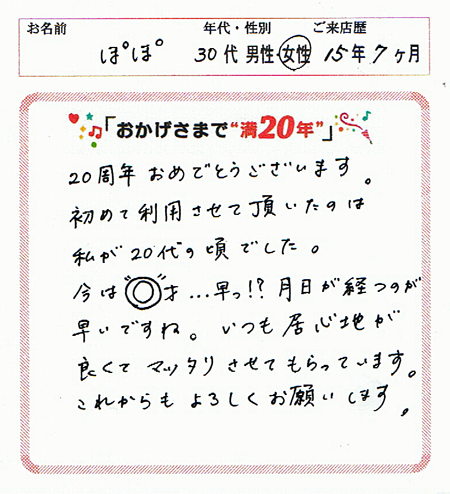 お名前 年代・性別 ご来店歴
ぽぽ 30代 男性・女性 15年7ヶ月
「おかげさまで“満20年”」
20周年おめでとうございます。
初めて利用させて頂いたのは
私が20代の頃でした。
今は◎才…早っ!?月日が経つのが
早いですね。いつも居心地が
良くてマッタリさせてもらっています。
これからもよろしくお願いします。